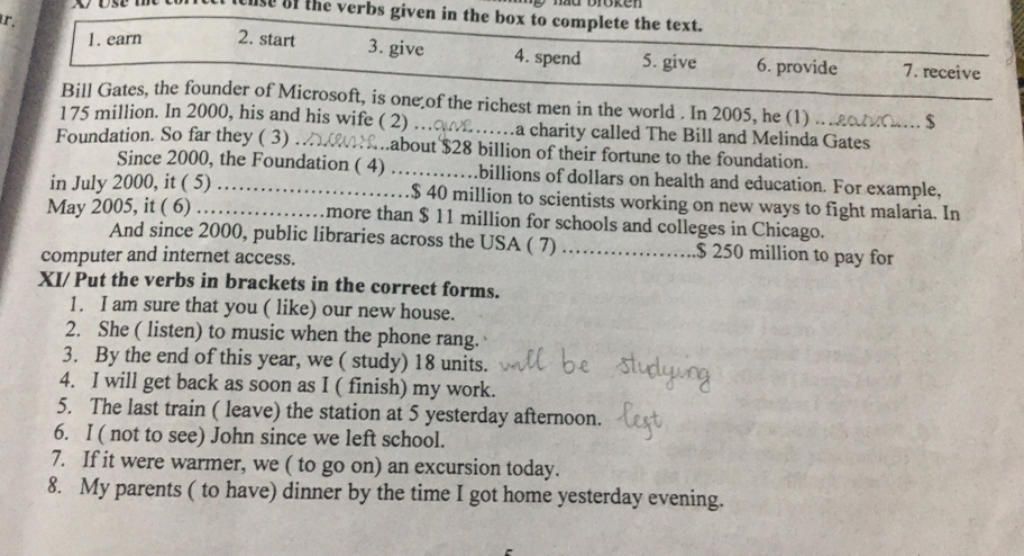 of the verbs given in the box to complete the text.
1. earn 2. start 3. give 4. spend 5. give 6. provide 7. receive
Bill Gates, the founder of Microsoft, is one of the richest men in the world . In 2005, he (1) ............ $
175 million. In 2000, his and his wife ( 2) ...give.......a charity called The Bill and Melinda Gates
Foundation. So far they ( 3) ............about $28 billion of their fortune to the foundation.
Since 2000, the Foundation ( 4) .............billions of dollars on health and education. For example,
in July 2000, it ( 5) ............................$ 40 million to scientists working on new ways to fight malaria. In
May 2005, it ( 6) ..................more than $ 11 million for schools and colleges in Chicago.
And since 2000, public libraries across the USA ( 7) ...................$ 250 million to pay for
computer and internet access.
XI/ Put the verbs in brackets in the correct forms.
1. I am sure that you ( like) our new house.
2. She ( listen) to music when the phone rang.
3. By the end of this year, we ( study) 18 units. will be studying
4. I will get back as soon as I ( finish) my work.
5. The last train ( leave) the station at 5 yesterday afternoon. left
6. I ( not to see) John since we left school.
7. If it were warmer, we ( to go on) an excursion today.
8. My parents ( to have) dinner by the time I got home yesterday evening.